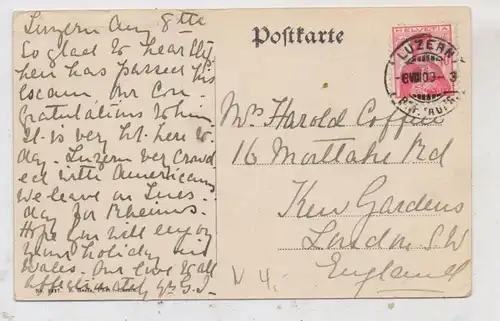 Luzern Aug 8th
So glad to hear
hen has passed his
exam Our Con-
gratulations to him
It is very hot here to
day. Luzern very crowd
ed with Americans
We leave on Tues-
day for Rheims.
Hope you will enjoy
your holiday in
Wales. Our love to all
affectionately
Postkarte
HELVETIA
LUZERN
Mrs Harold Coffin
16 Mortlake Rd
Kew Gardens
London S.W
England